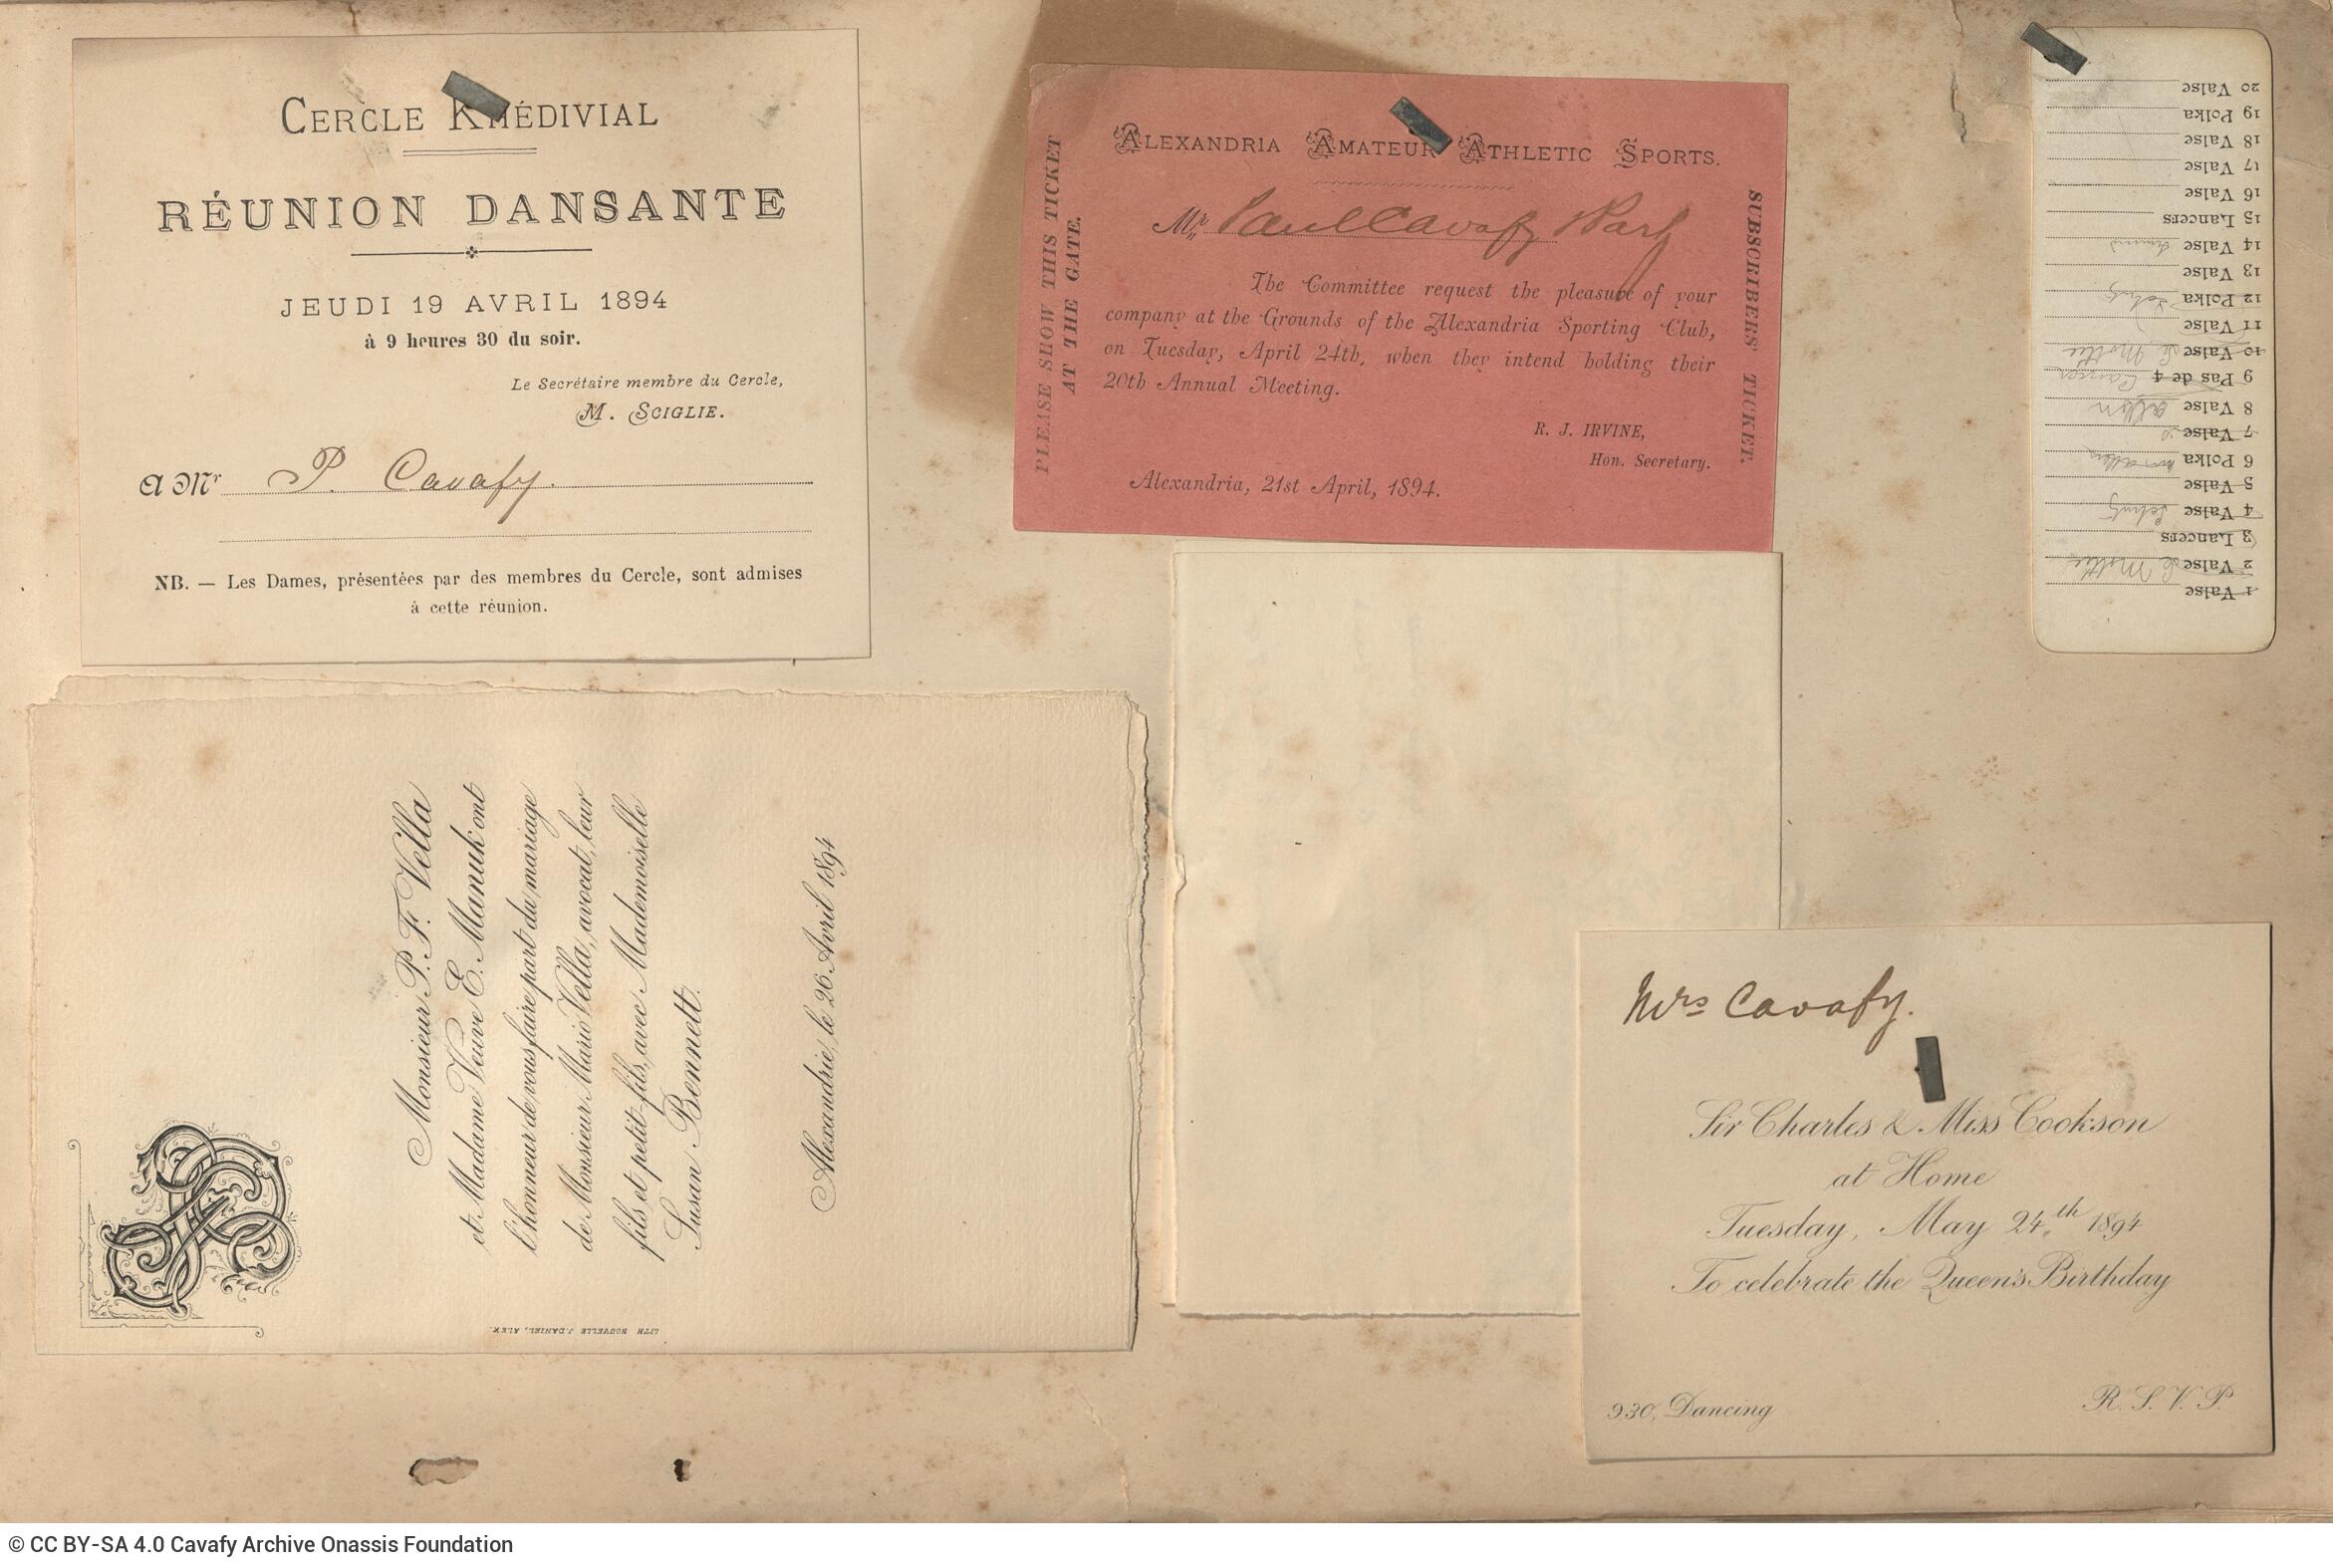 CERCLE KHÉDIVIAL
RÉUNION DANSANTE
JEUDI 19 AVRIL 1894
à 9 heures 30 du soir.
Le Secrétaire membre du Cercle,
M. SCIGLIE.
A Mr P. Cavafy.
NB. — Les Dames, présentées par des membres du Cercle, sont admises
à cette réunion.
PLEASE SHOW THIS TICKET
AT THE GATE.
ALEXANDRIA AMATEUR ATHLETIC SPORTS.
Mr. Paul Cavafy
The Committee request the pleasure of your
company at the Grounds of the Alexandria Sporting Club,
on Tuesday, April 24th, when they intend holding their
20th Annual Meeting.
R. J. IRVINE,
Hon. Secretary.
Alexandria, 21st April, 1894.
SUBSCRIBERS' TICKET.
1 Valse
2 Valse
3 Lancers
4 Valse
5 Valse
6 Polka
7 Valse
8 Valse
9 Pas de 4
10 Valse
11 Valse
12 Polka
13 Valse
14 Valse
15 Lancers
16 Valse
17 Valse
18 Valse
19 Polka
20 Valse
Monsieur P. F. Vella
et Madame Veuve E. Manuk ont
l'honneur de vous faire part du mariage
de Monsieur Mario Vella, avocat, leur
fils et petit-fils, avec Mademoiselle
Susan Bennett.
Alexandrie, le 26 Avril 1894
LITH NOUVELLE J. DANIEL, ALEX.
Mrs Cavafy.
Sir Charles & Miss Cookson
at Home
Tuesday, May 24th 1894
To celebrate the Queen's Birthday
9.30, Dancing
R. S. V. P.
© CC BY-SA 4.0 Cavafy Archive Onassis Foundation